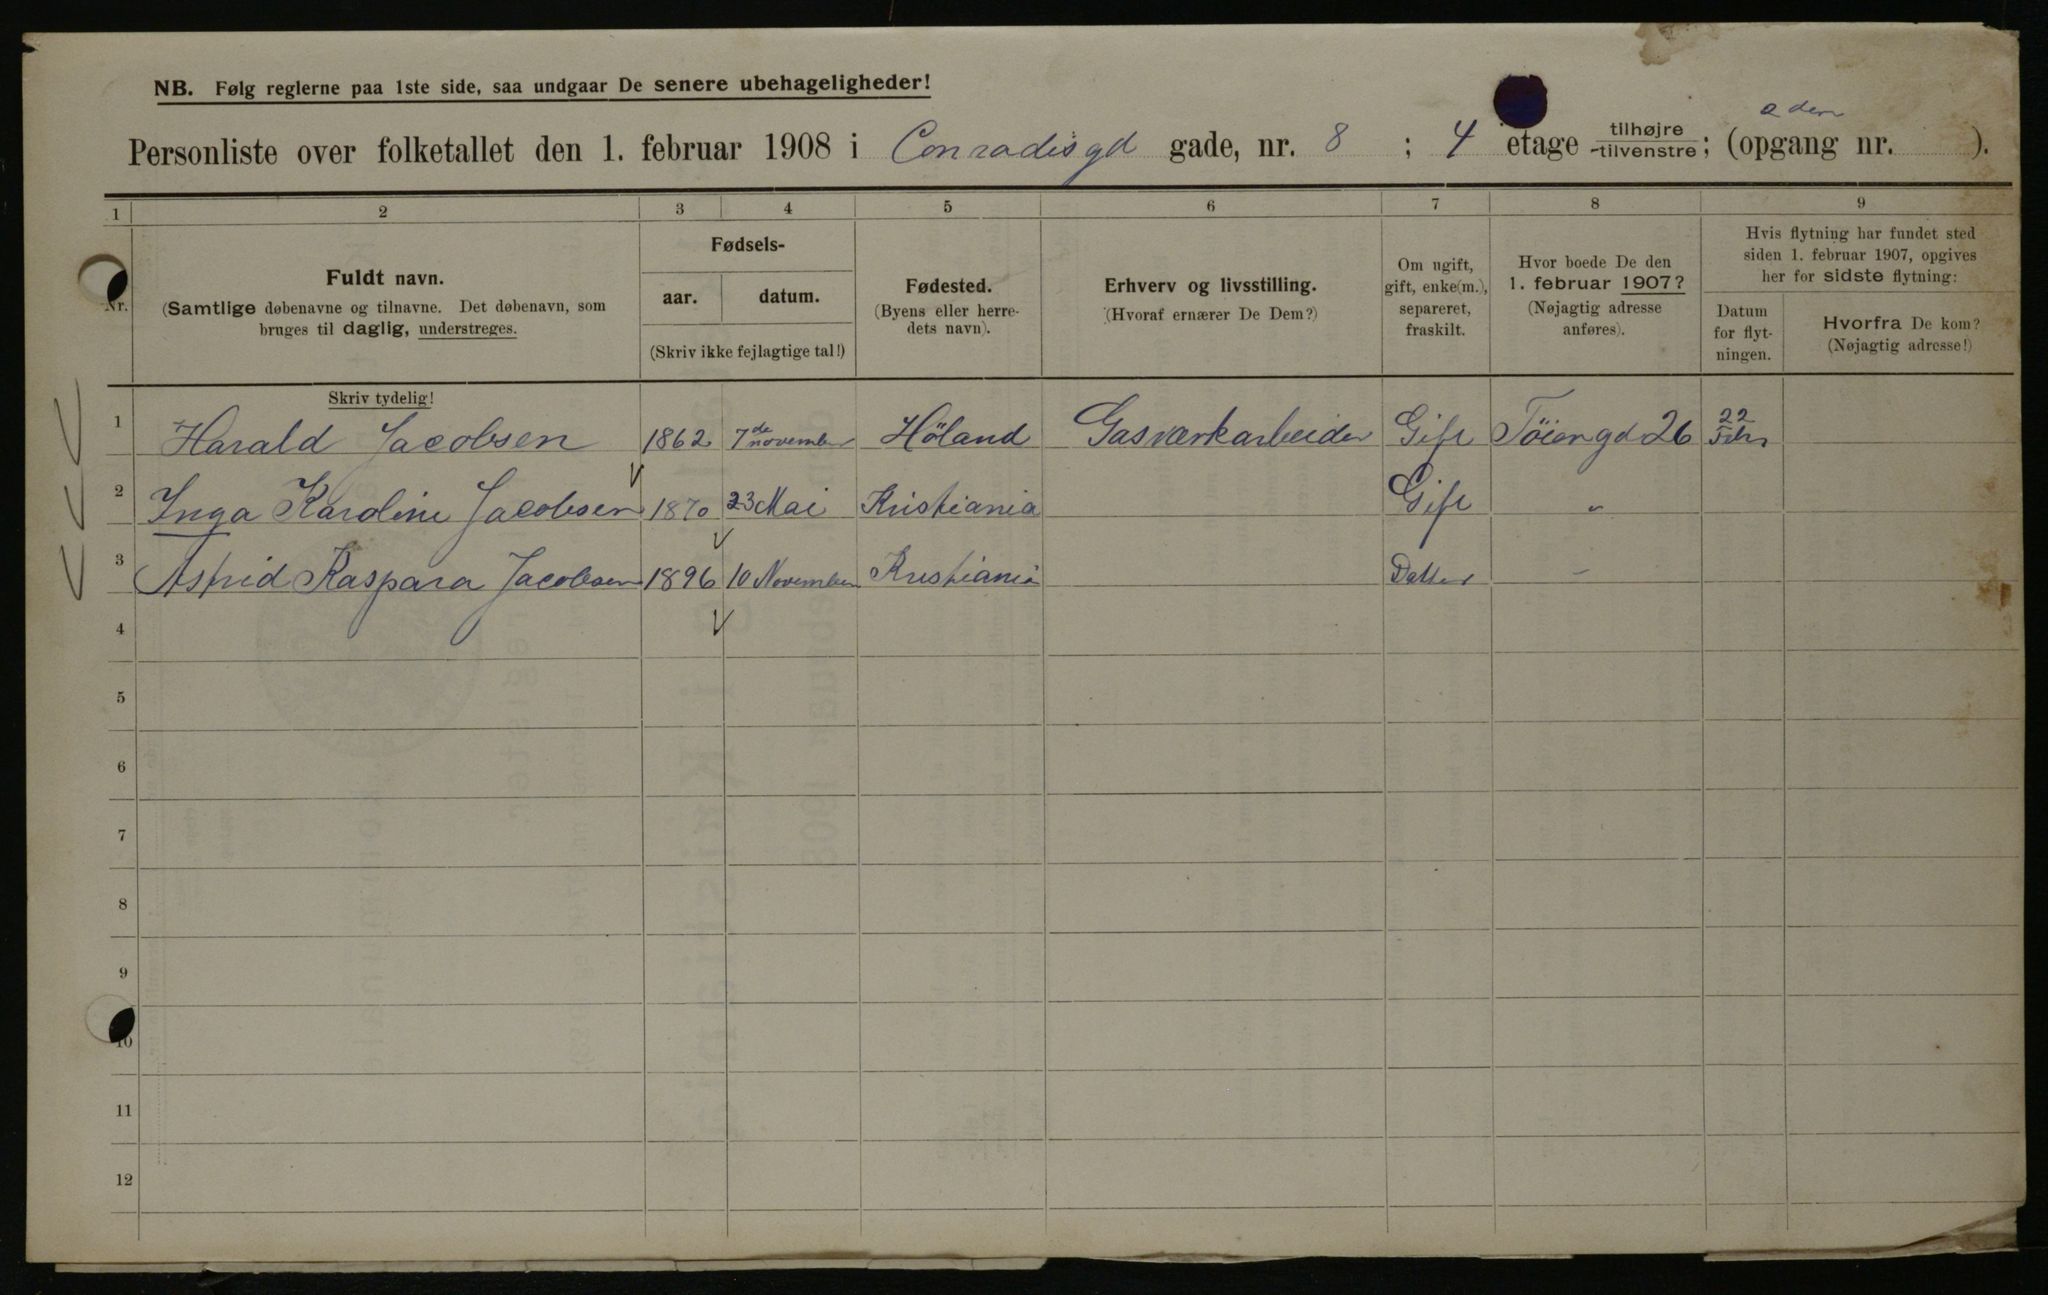 NB. Følg reglerne paa 1ste side, saa undgaar De senere ubehageligheder!
Personliste over folketallet den 1. februar 1908 i Conradisgd gade, nr. 8 ; 4 etage tilhøjre tilvenstre; (opgang nr. ).
1 2 3 4 5 6 7 8 9
Nr.
Fuldt navn.
(Samtlige døbenavne og tilnavne. Det døbenavn, som
bruges til daglig, understreges.
Fødsels-
aar. datum.
(Skriv ikke fejlagtige tal!)
Fødested.
(Byens eller herre-
dets navn).
Erhverv og livsstilling.
(Hvoraf ernærer De Dem?)
Om ugift,
gift, enke(m.),
separeret,
fraskilt.
Hvor boede De den
1. februar 1907?
(Nøjagtig adresse
anføres).
Hvis flytning har fundet sted
siden 1. februar 1907, opgives
her for sidste flytning:
Datum
for flyt-
ningen.
Hvorfra De kom?
(Nøjagtig adresse!)
Skriv tydelig!
1 Harald Jacobsen 1862 7de november Høland Gasværkarbeider Gift Töiengd 26 22 Febr
2 Inga Karoline Jacobsen 1870 23 Mai Kristiania Gift "
3 Astrid Kaspara Jacobsen 1896 10 November Kristiania Datter -
4
5
6
7
8
9
10
11
12